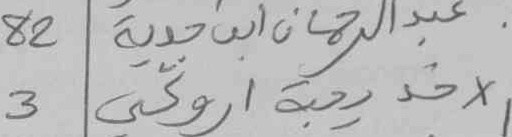 عبد الرحمان ابن جدية 82
x خديجة اروكي 3